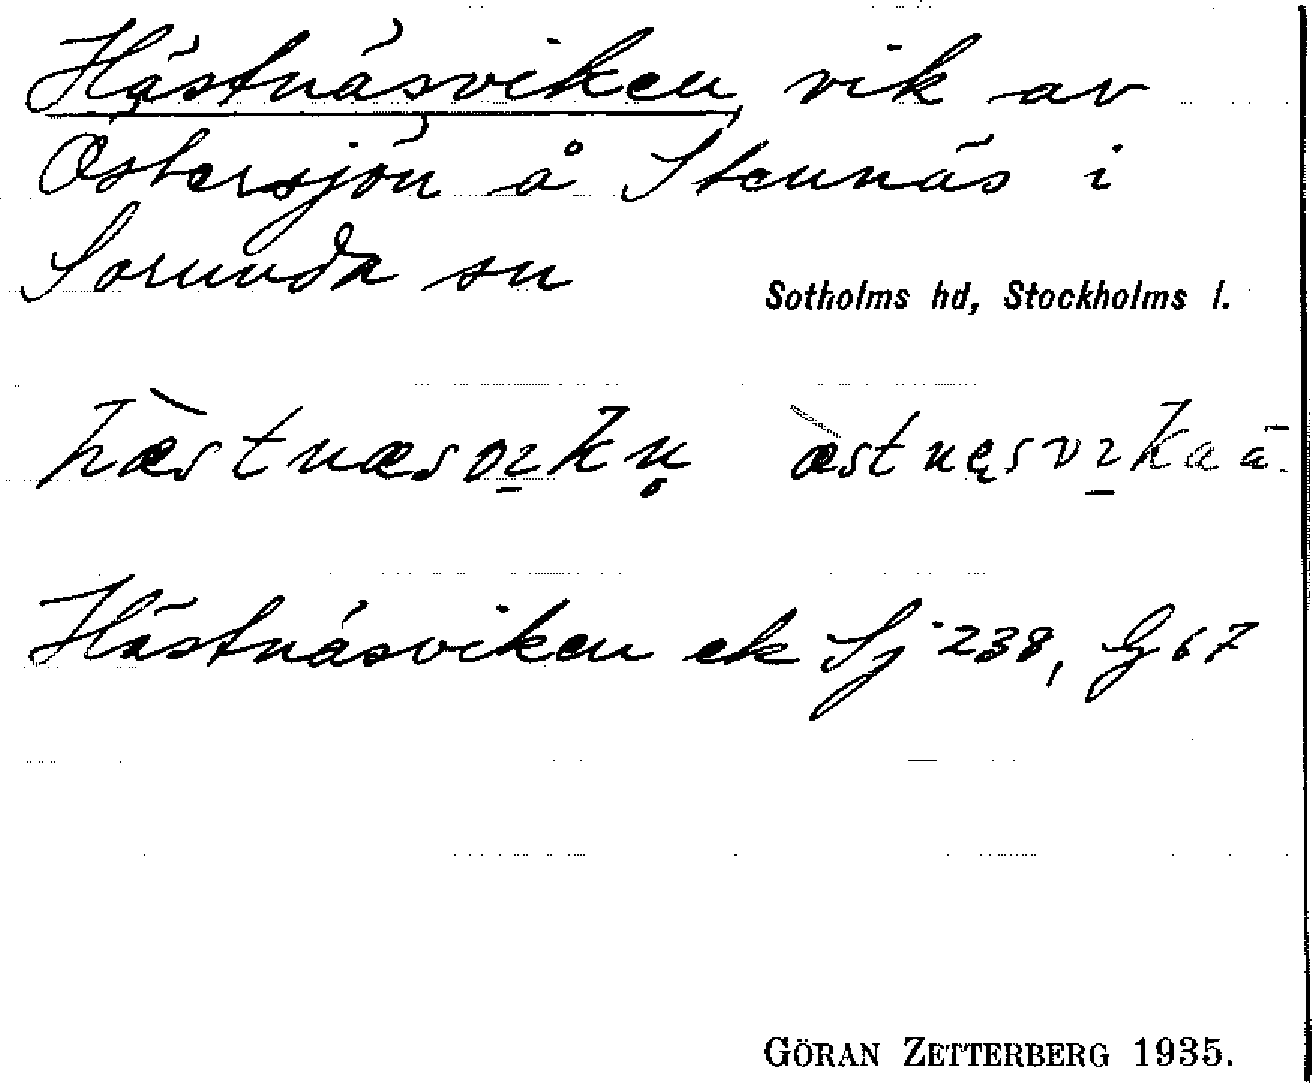 Hästnäsviken, vik av
Östersjön å Stennäs i
Sorunda sn
Sotholms hd, Stockholms l.
hæ̀stnæsvı̱kn̥ æ̀stnęsvı̱ka ä.
Hästnäsviken ek Sj 238, G 67
GÖRAN ZETTERBERG 1935.